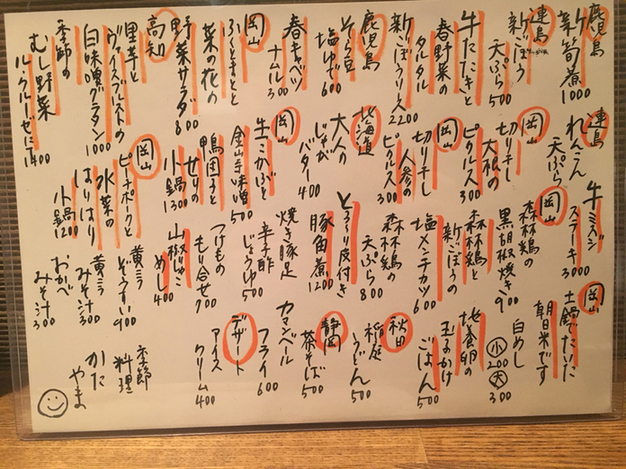 鹿児島
新筍煮 1000
連島
新ごぼう
天ぷら 500
牛たたきと
春野菜の
タルタル
新ごぼうソース 2200
鹿児島
そら豆
塩ゆで 600
春キャベツ
ナムル 300
岡山
ふくちまとと
菜の花の
野菜サラダ 800
高知
里芋と
ヴァイスブルストの
白味噌グラタン 1000
季節の
むし野菜
ル・クルーゼに 1400
連島
れんこん
天ぷら 500
岡山
切り干し
大根の
ピクルス 300
岡山
切り干し
人参の
ピクルス 300
北海道
大人の
じゃが
バター 400
岡山
生こかぶと
金山寺味噌 500
鴨団子と
せりの
小鍋 1300
岡山
ピーチポークと
水菜の
はりはり
小鍋 1200
牛ミスジ
ステーキ 3000
岡山
森林鶏の
黒胡椒焼き 900
森林鶏と
新ごぼうの
塩メンチカツ 600
森林鶏の
天ぷら 800
とろーり皮付き
豚角煮 1200
焼き豚足
辛子酢
じょうゆ 500
つけもの
もり合せ 700
山椒じゃこ
めし 400
黄ニラ
ぞうすい 900
黄ニラ
みそ汁 300
おかべ
みそ汁 300
岡山
土鍋でたいた
朝日米です
白めし
小 200 大 300
地養卵の
玉子かけ
ごはん 500
秋田
稲庭
うどん 500
静岡
茶そば 500
カマンベール
フライ 600
デザート
アイス
クリーム 400
季節
料理
かた
やま